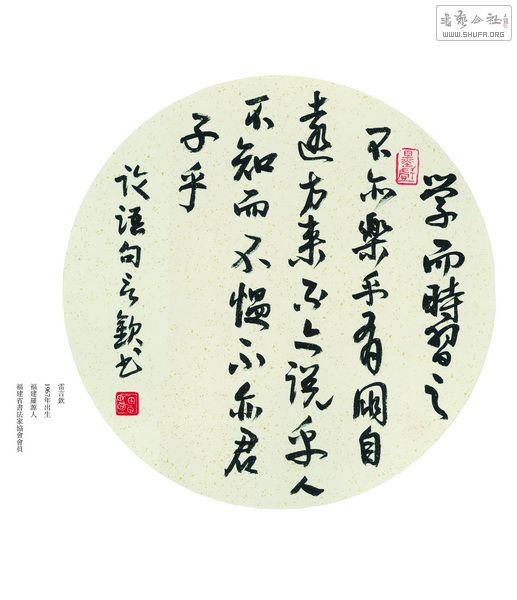 書藝公社
WWW.SHUFA.ORG
学而時習之
不亦樂乎有朋自
遠方来不亦说乎人
不知而不愠不亦君
子乎
论语句言欽书
雷言欽
1967年出生
福建羅源人
福建省書法家協會會員